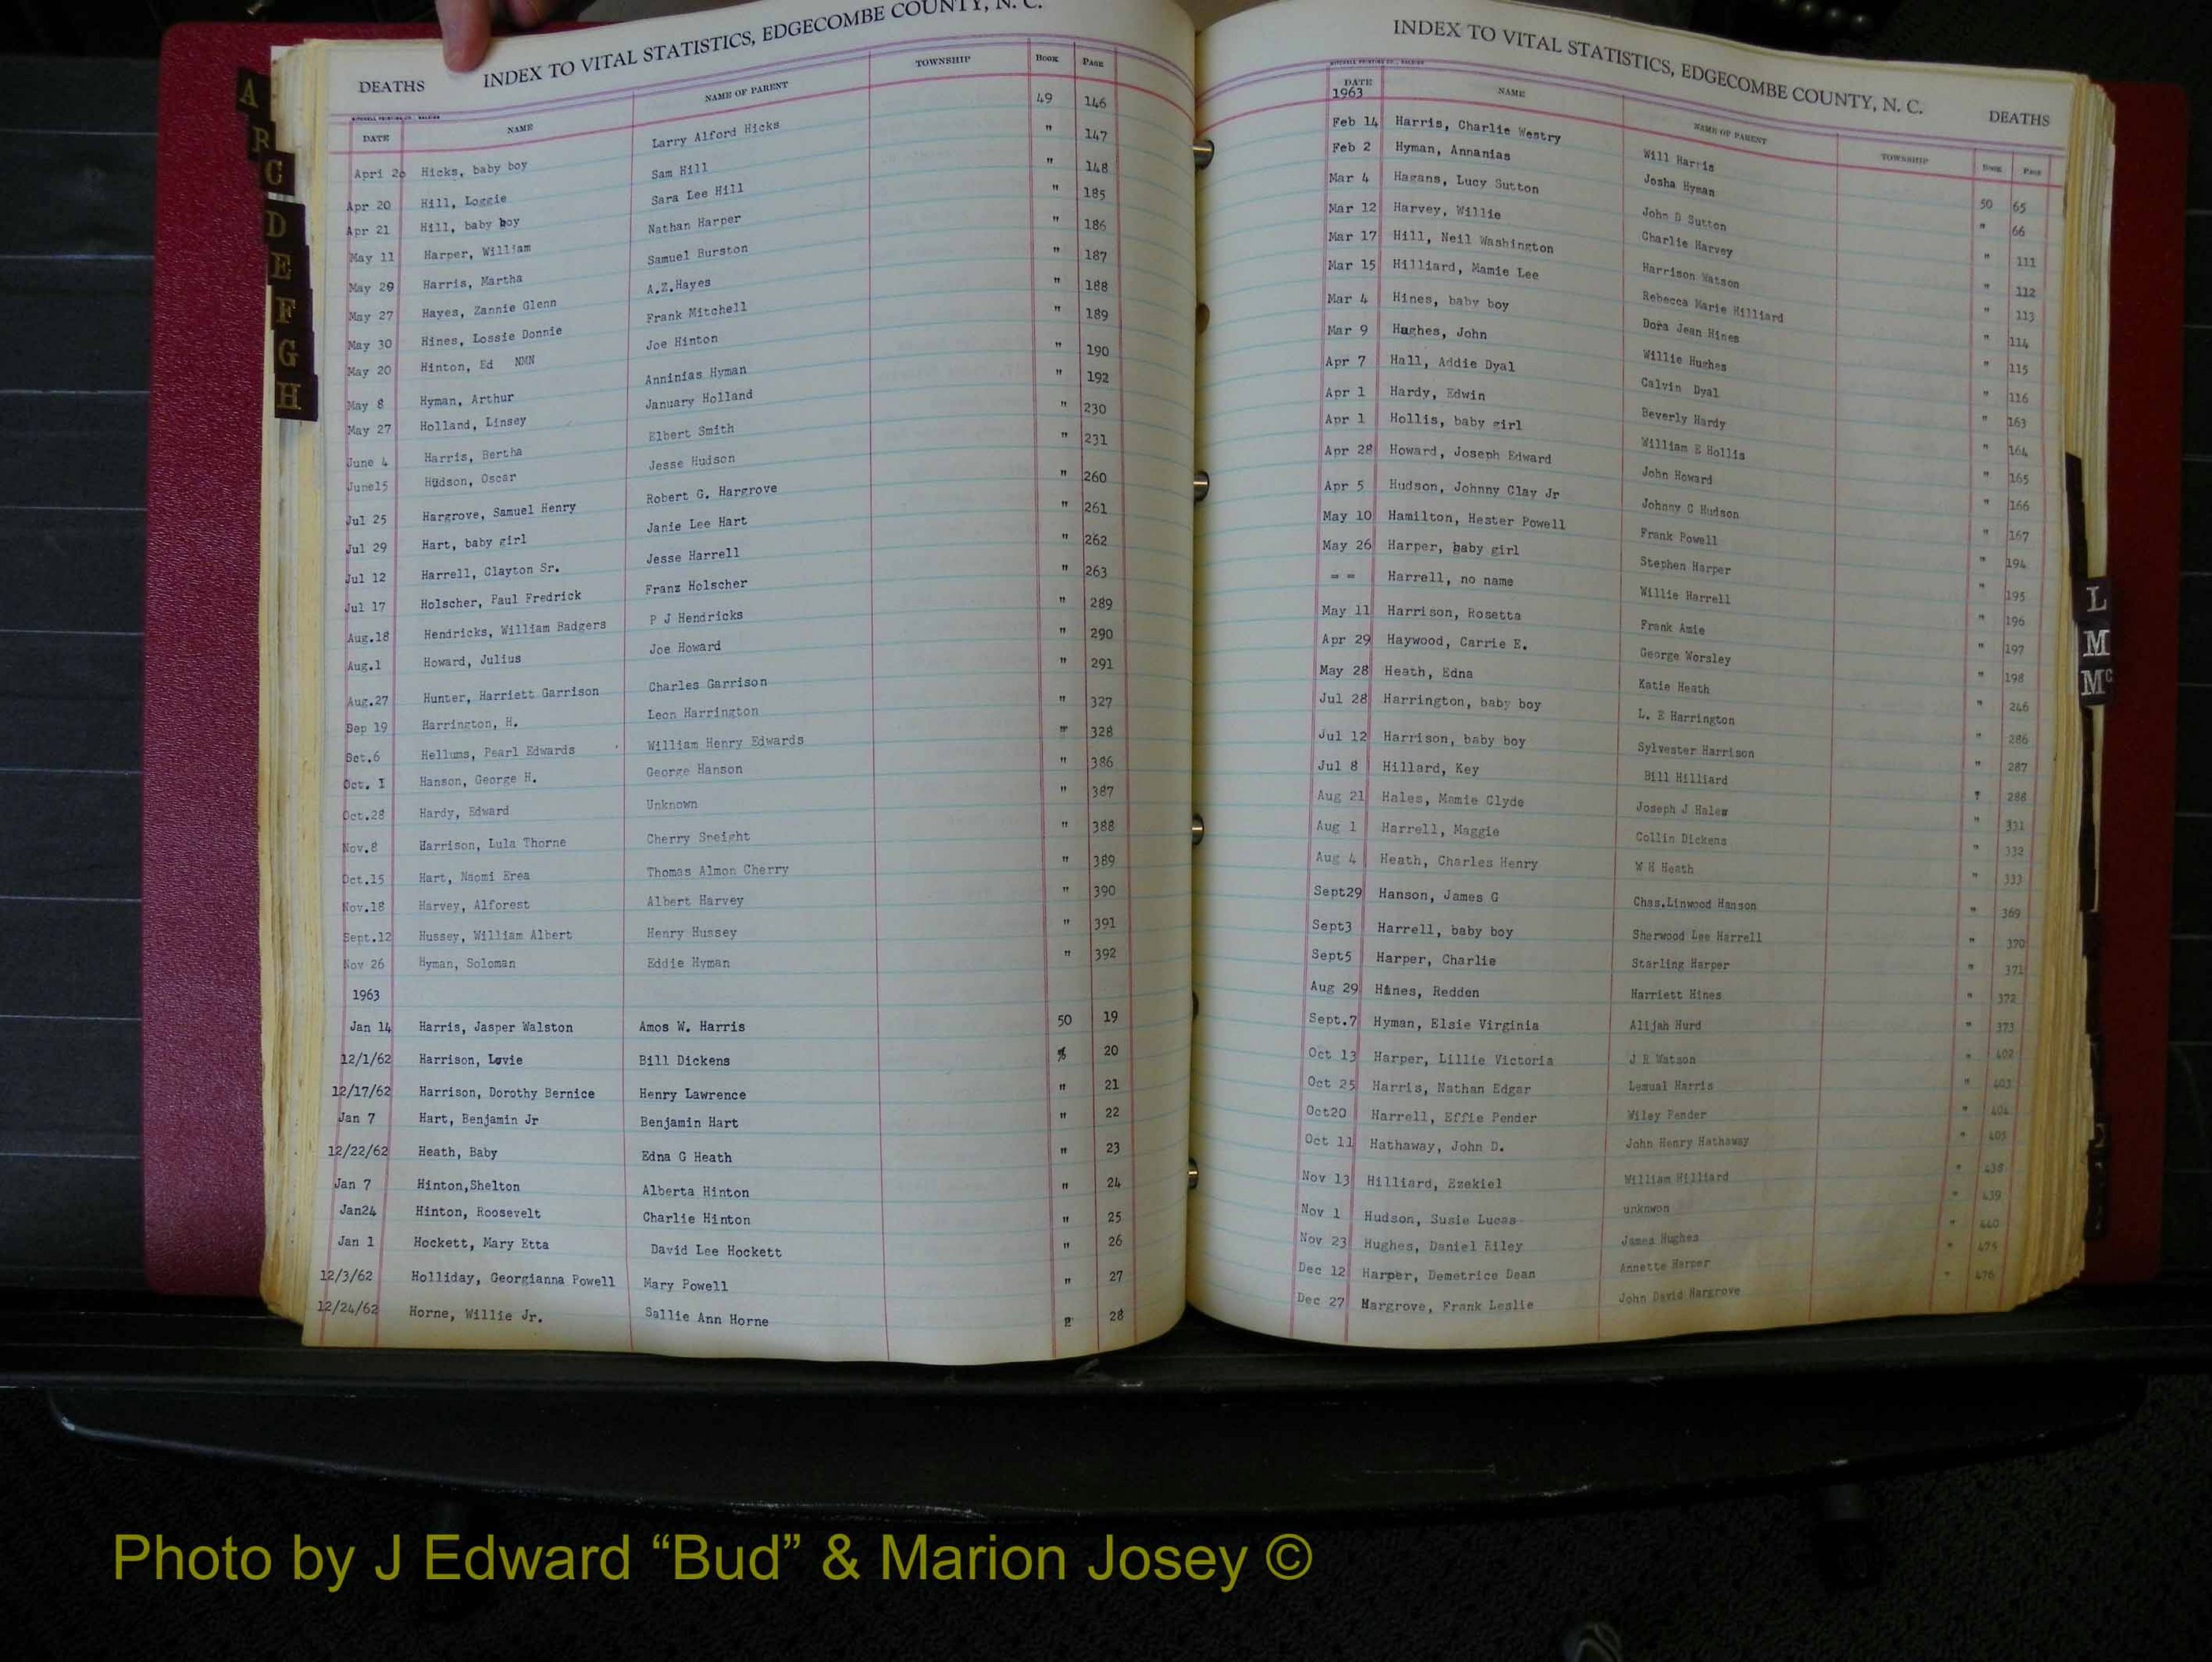 INDEX TO VITAL STATISTICS, EDGECOMBE COUNTY, N. C.
DEATHS
DATE NAME NAME OF PARENT TOWNSHIP BOOK PAGE
Apri 20 Hicks, baby boy Larry Alford Hicks 49 146
Apr 20 Hill, Loggie Sam Hill " 147
Apr 21 Hill, baby boy Sara Lee Hill " 148
May 11 Harper, William Nathan Harper " 185
May 29 Harris, Martha Samuel Burston " 186
May 27 Hayes, Zannie Glenn A.Z.Hayes " 187
May 30 Hines, Lossie Donnie Frank Mitchell " 188
May 20 Hinton, Ed NMN Joe Hinton " 189
May 8 Hyman, Arthur Anninias Hyman " 190
May 27 Holland, Linsey January Holland " 192
June 4 Harris, Bertha Elbert Smith " 230
June15 Hudson, Oscar Jesse Hudson " 231
Jul 25 Hargrove, Samuel Henry Robert G. Hargrove " 260
Jul 29 Hart, baby girl Janie Lee Hart " 261
Jul 12 Harrell, Clayton Sr. Jesse Harrell " 262
Jul 17 Holscher, Paul Fredrick Franz Holscher " 263
Aug.18 Hendricks, William Badgers P J Hendricks " 289
Aug.1 Howard, Julius Joe Howard " 290
Aug.27 Hunter, Harriett Garrison Charles Garrison " 291
Sep 19 Harrington, H. Leon Harrington " 327
Oct.6 Hellums, Pearl Edwards William Henry Edwards " 328
Oct. 1 Hanson, George H. George Hanson " 386
Oct.28 Hardy, Edward Unknown " 387
Nov.8 Harrison, Lula Thorne Cherry Speight " 388
Oct.15 Hart, Naomi Erea Thomas Almon Cherry " 389
Nov.18 Harvey, Alforest Albert Harvey " 390
Sept.12 Hussey, William Albert Henry Hussey " 391
Nov 26 Hyman, Soloman Eddie Hyman " 392
1963
Jan 14 Harris, Jasper Walston Amos W. Harris 50 19
12/1/62 Harrison, Lovie Bill Dickens 20
12/17/62 Harrison, Dorothy Bernice Henry Lawrence " 21
Jan 7 Hart, Benjamin Jr Benjamin Hart " 22
12/22/62 Heath, Baby Edna G Heath " 23
Jan 7 Hinton,Shelton Alberta Hinton " 24
Jan24 Hinton, Roosevelt Charlie Hinton " 25
Jan 1 Hockett, Mary Etta David Lee Hockett " 26
12/3/62 Holliday, Georgianna Powell Mary Powell " 27
12/24/62 Horne, Willie Jr. Sallie Ann Horne " 28
INDEX TO VITAL STATISTICS, EDGECOMBE COUNTY, N. C.
DEATHS
DATE NAME NAME OF PARENT TOWNSHIP BOOK PAGE
1963
Feb 14 Harris, Charlie Westry Will Harris 50 65
Feb 2 Hyman, Annanias Josha Hyman " 66
Mar 4 Hagans, Lucy Sutton John D Sutton " 111
Mar 12 Harvey, Willie Charlie Harvey " 112
Mar 17 Hill, Neil Washington Harrison Watson " 113
Mar 15 Hilliard, Mamie Lee Rebecca Marie Hilliard " 114
Mar 4 Hines, baby boy Dora Jean Hines " 115
Mar 9 Hughes, John Willie Hughes " 116
Apr 7 Hall, Addie Dyal Calvin Dyal " 163
Apr 1 Hardy, Edwin Beverly Hardy " 164
Apr 1 Hollis, baby girl William E Hollis " 165
Apr 28 Howard, Joseph Edward John Howard " 166
Apr 5 Hudson, Johnny Clay Jr Johnny C Hudson " 167
May 10 Hamilton, Hester Powell Frank Powell " 194
May 26 Harper, baby girl Stephen Harper " 195
= = Harrell, no name Willie Harrell " 196
May 11 Harrison, Rosetta Frank Amie " 197
Apr 29 Haywood, Carrie E. George Worsley " 198
May 28 Heath, Edna Katie Heath " 246
Jul 28 Harrington, baby boy L. E Harrington " 286
Jul 12 Harrison, baby boy Sylvester Harrison " 287
Jul 8 Hillard, Key Bill Hilliard " 288
Aug 21 Hales, Mamie Clyde Joseph J Halew " 331
Aug 1 Harrell, Maggie Collin Dickens " 332
Aug 4 Heath, Charles Henry W H Heath " 333
Sept29 Hanson, James G Chas.Linwood Hanson " 369
Sept3 Harrell, baby boy Sherwood Lee Harrell " 370
Sept5 Harper, Charlie Starling Harper " 371
Aug 29 Hines, Redden Harriett Hines " 372
Sept.7 Hyman, Elsie Virginia Alijah Hurd " 373
Oct 13 Harper, Lillie Victoria J R Watson " 402
Oct 25 Harris, Nathan Edgar Lemual Harris " 403
Oct20 Harrell, Effie Pender Wiley Pender " 404
Oct 11 Hathaway, John D. John Henry Hathaway " 405
Nov 13 Hilliard, Ezekiel William Hilliard " 438
Nov 1 Hudson, Susie Lucas unknwon " 439
Nov 23 Hughes, Daniel Riley James Hughes " 440
Dec 12 Harper, Demetrice Dean Annette Harper " 475
Dec 27 Hargrove, Frank Leslie John David Hargrove " 476
A
R
C
D
E
F
G
H
L
M
Mc
Photo by J Edward “Bud” & Marion Josey ©